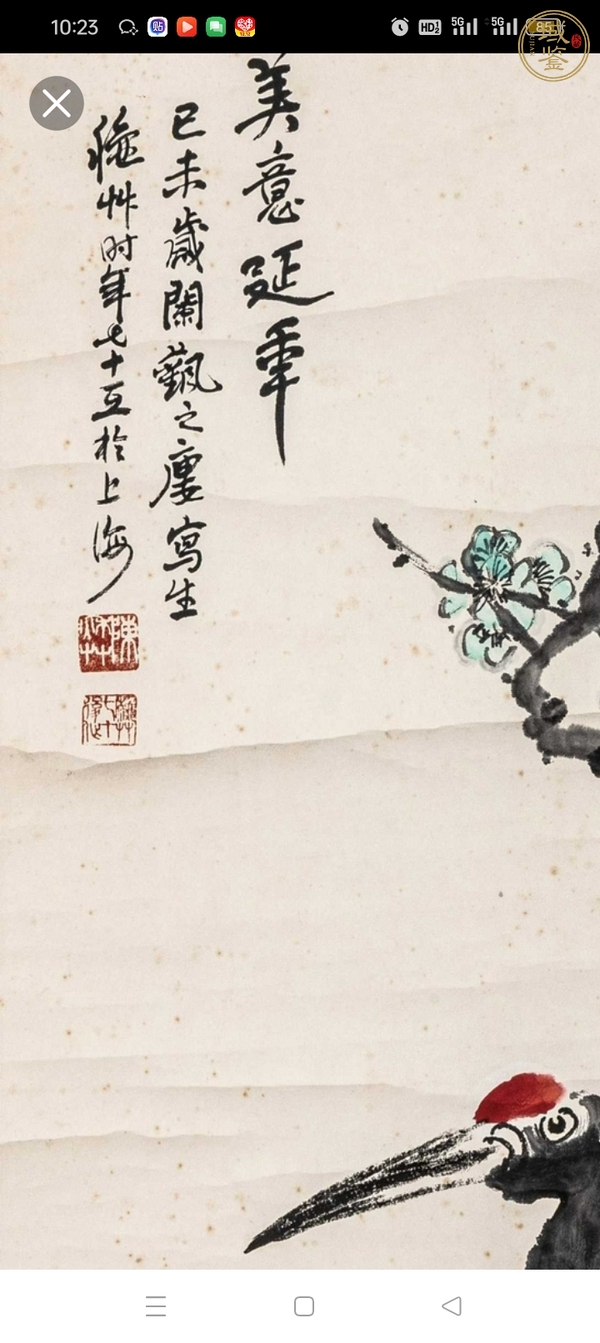 10:23 HD 5G 5G 85
鉴
美意延年
己未歲闌觀之廔寫生
穐艸时年七十五於上海